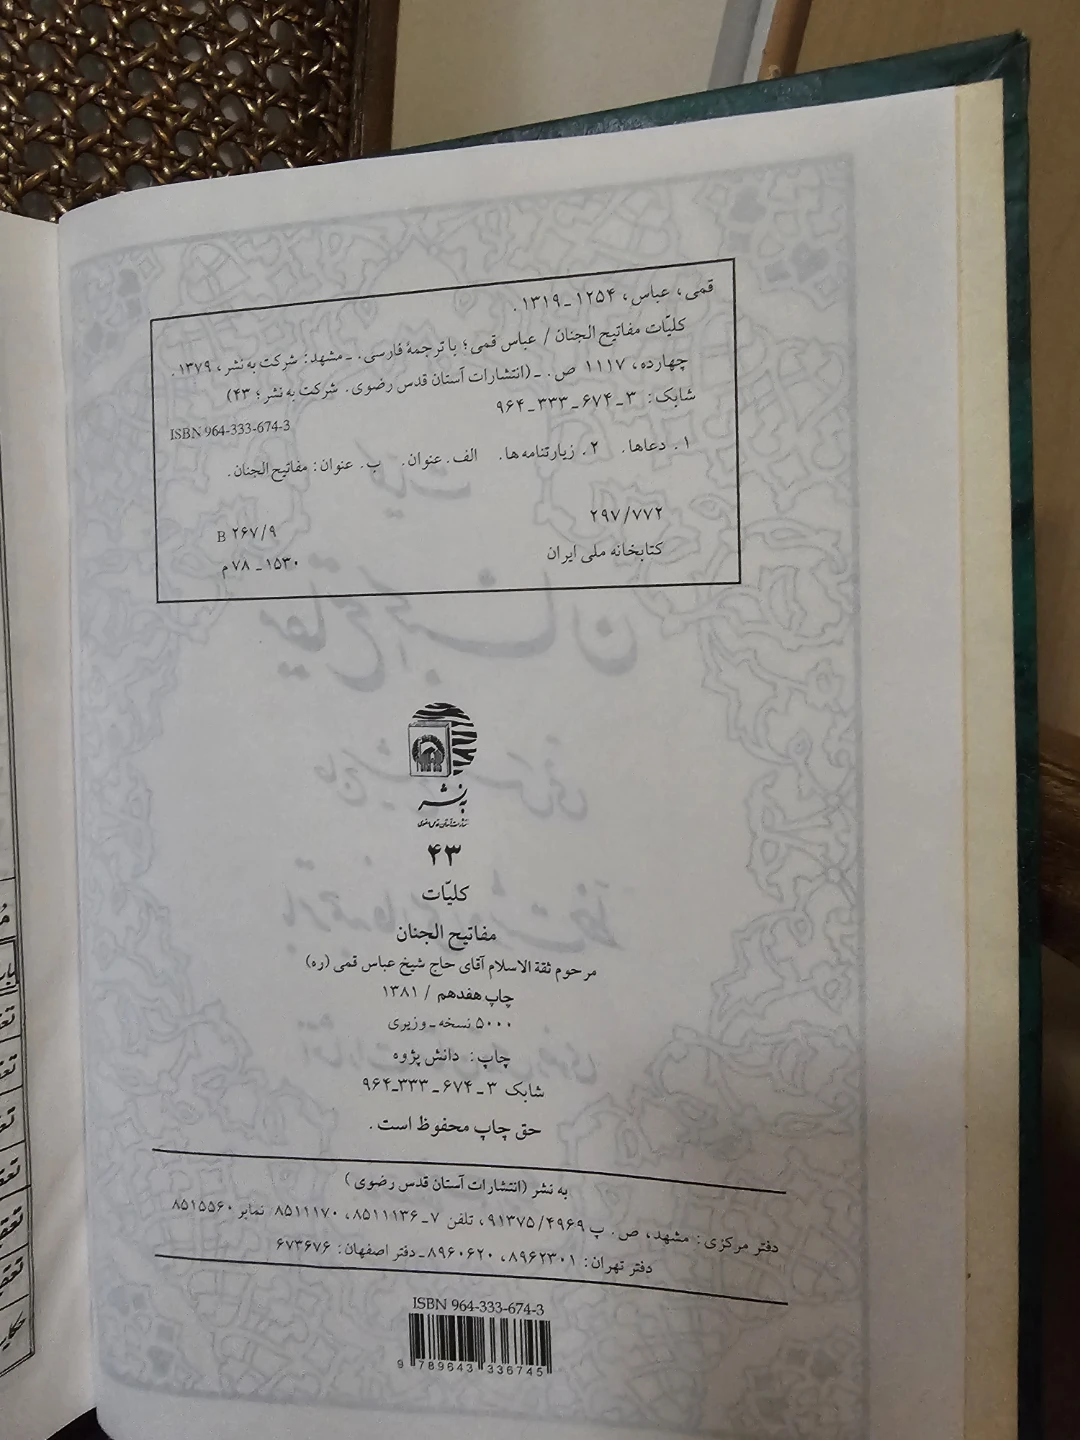 قمی، عباس، ۱۲۵۴ ـ ۱۳۱۹.
کلیّات مفاتیح الجنان / عباس قمی؛ با ترجمهٔ فارسی. ـ مشهد: شرکت به نشر، ۱۳۷۹.
چهارده، ۱۱۱۷ ص. ـ (انتشارات آستان قدس رضوی. شرکت به نشر؛ ۴۳)
شابک: ۳ ـ ۶۷۴ ـ ۳۳۳ ـ ۹۶۴
ISBN 964-333-674-3
۱. دعاها. ۲. زیارتنامه ها. الف. عنوان. ب. عنوان: مفاتیح الجنان.
۲۹۷/۷۷۲
B ۲۶۷/۹
کتابخانه ملی ایران
۱۵۳۰ ـ ۷۸ م
به نشر
۴۳
کلیّات
مفاتیح الجنان
مرحوم ثقة الاسلام آقای حاج شیخ عباس قمی (ره)
چاپ هفدهم / ۱۳۸۱
۵۰۰۰ نسخه ـ وزیری
چاپ: دانش پژوه
شابک ۳ ـ ۶۷۴ ـ ۳۳۳ـ۹۶۴
حق چاپ محفوظ است.
به نشر (انتشارات آستان قدس رضوی)
دفتر مرکزی: مشهد، ص. پ ۹۱۳۷۵/۴۹۶۹، تلفن ۷ـ۸۵۱۱۱۳۶، ۸۵۱۱۱۷۰ نمابر ۸۵۱۵۵۶۰
دفتر تهران: ۸۹۶۲۳۰۱، ۸۹۶۰۶۲۰ـ دفتر اصفهان: ۶۷۳۶۷۶
ISBN 964-333-674-3
9 789643 336745